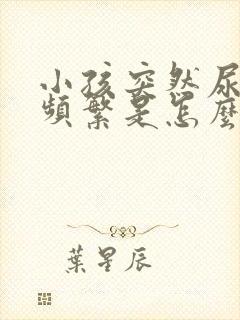 小孩突然尿
頻繁是怎麼
葉星辰